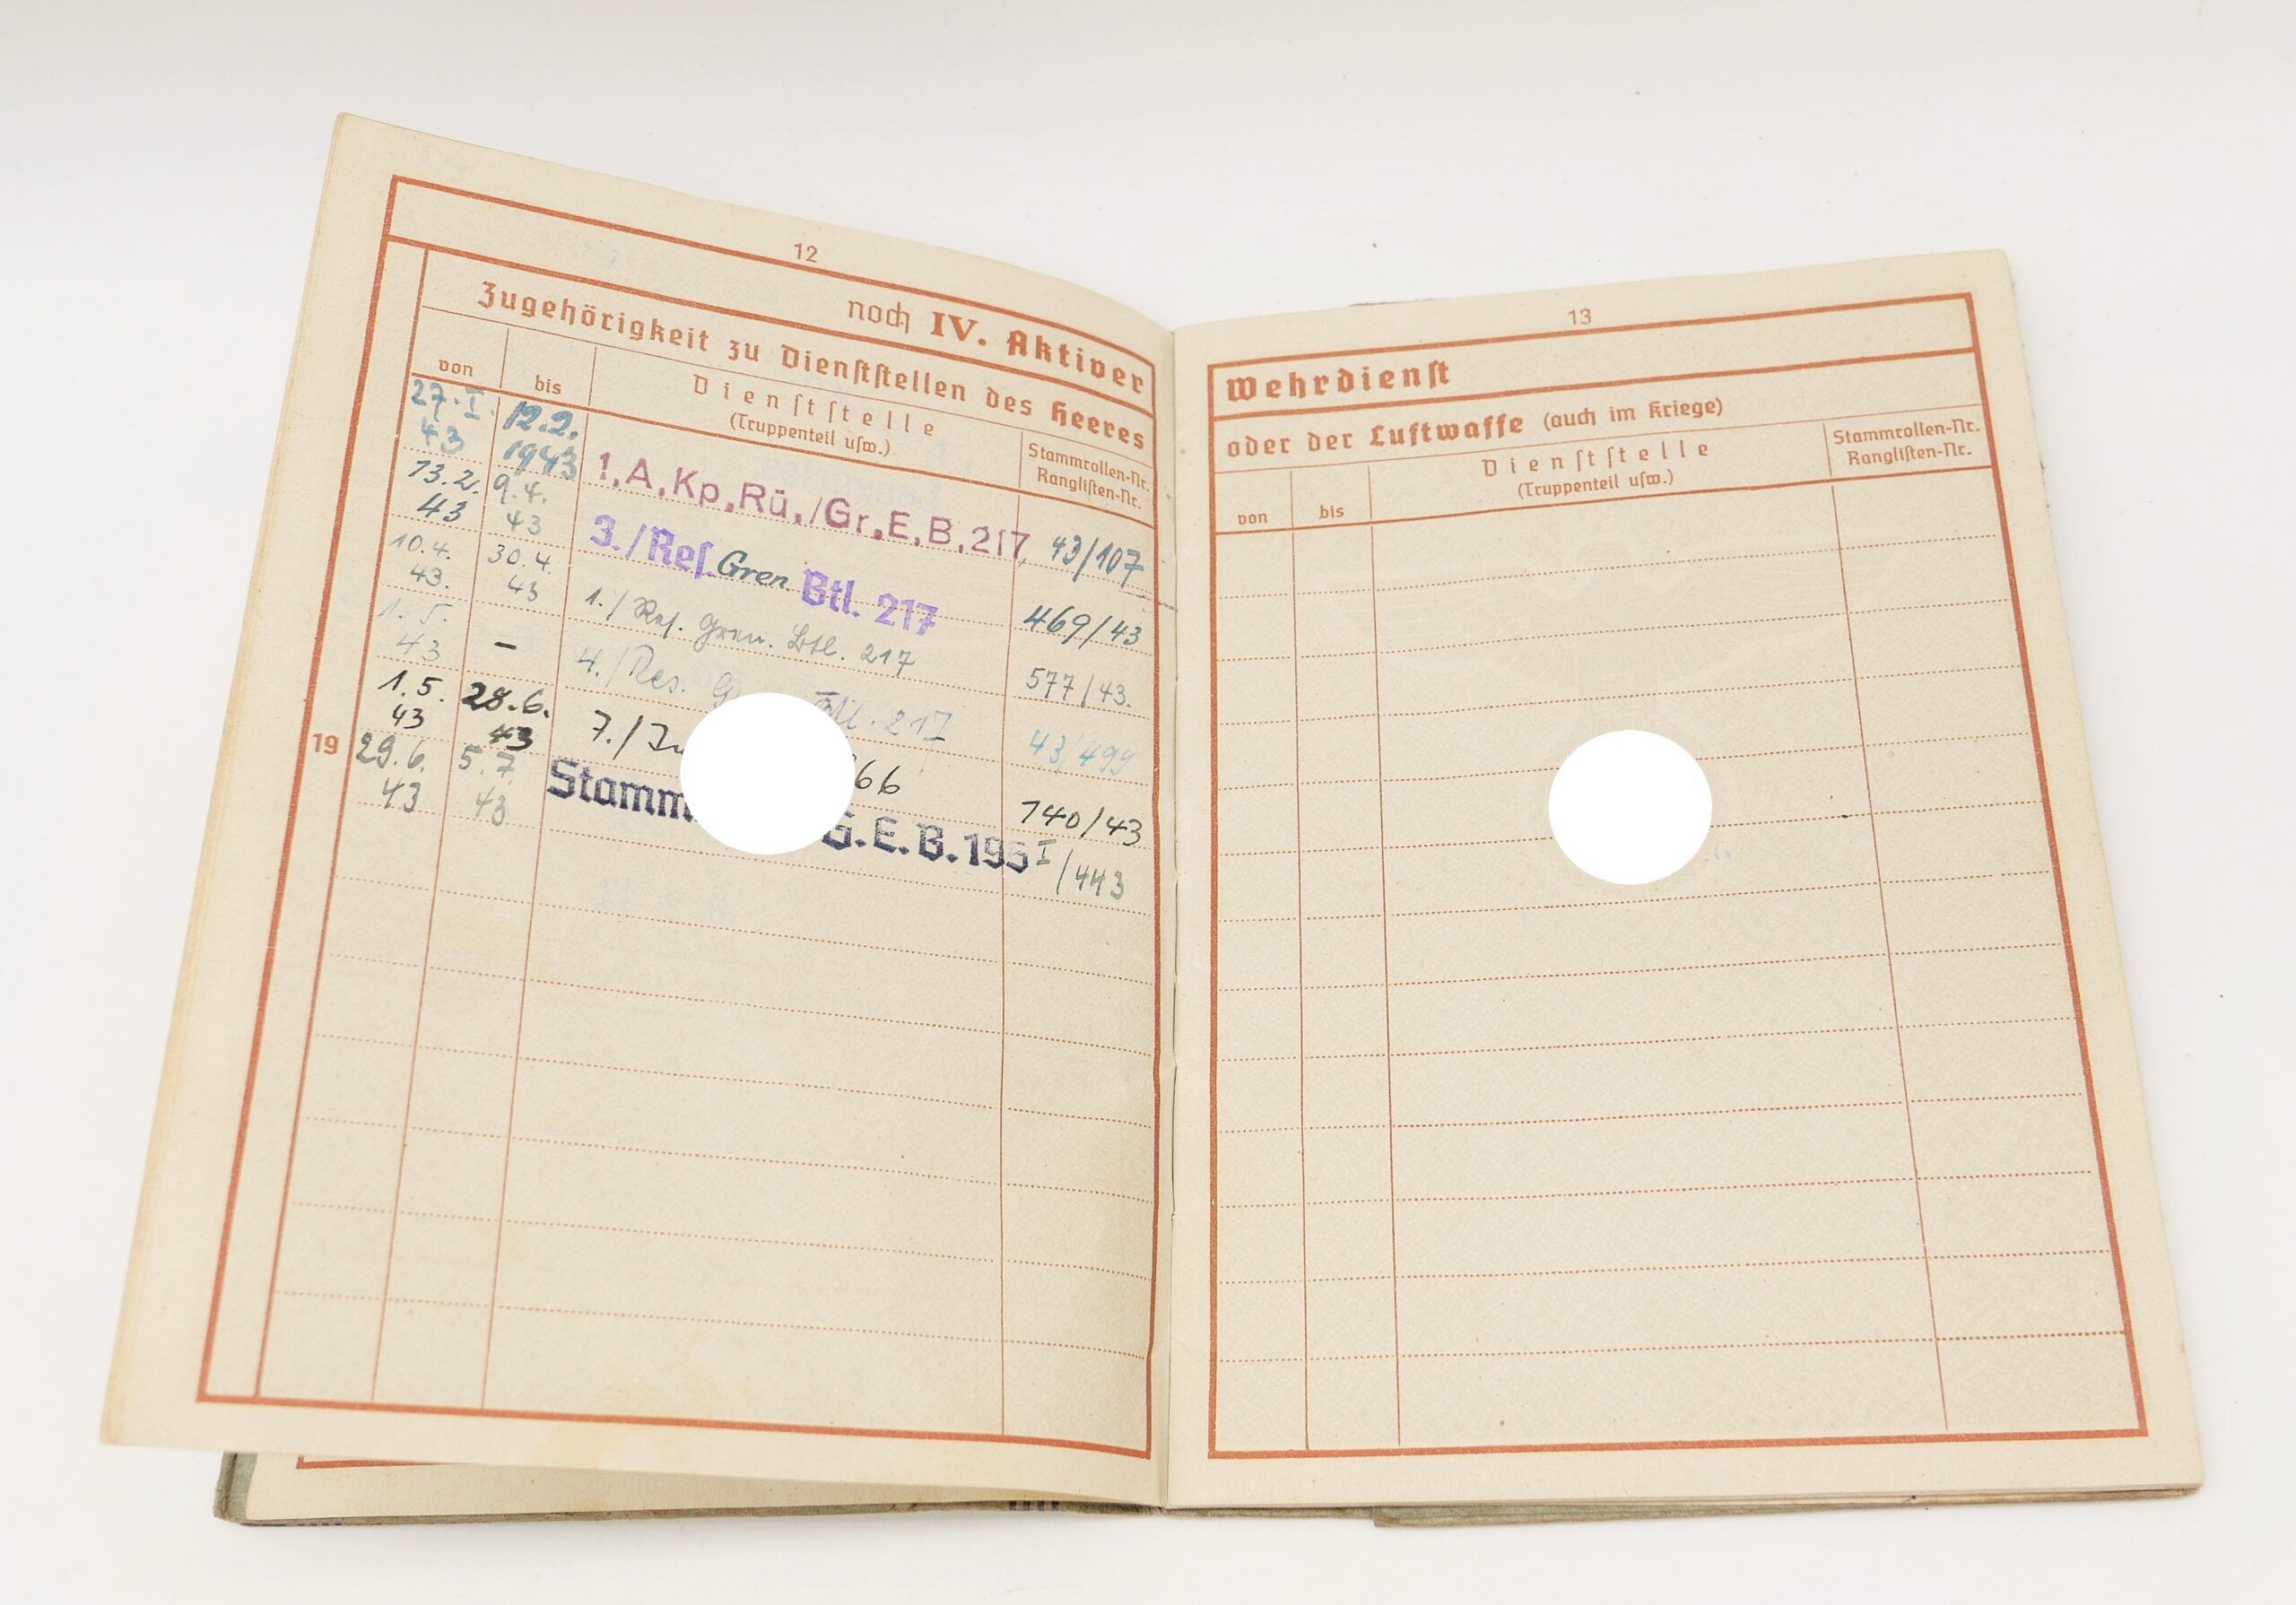 12
noch IV. Aktiver
Zugehörigkeit zu Dienststellen des Heeres
von bis Dienststelle
(Truppenteil usw.)
Stammrollen-Nr.
Ranglisten-Nr.
27.I. 43 12.2. 1943 1.A.Kp.Rü./Gr.E.B.217 43/107
13.2. 43 9.4. 43 3./Res. Gren. Btl. 217 469/43
10.4. 43. 30.4. 43 1./Res. Gren. Btl. 217 577/43.
1.5. 43 – 4./Res. Btl. 217 43/499
1.5. 43 28.6. 43 7./ 66 140/43
19
29.6. 43 5.7. 43 Stamm G.E.B.195 I/443
13
Wehrdienst
oder der Luftwaffe (auch im Kriege)
von bis Dienststelle
(Truppenteil usw.)
Stammrollen-Nr.
Ranglisten-Nr.